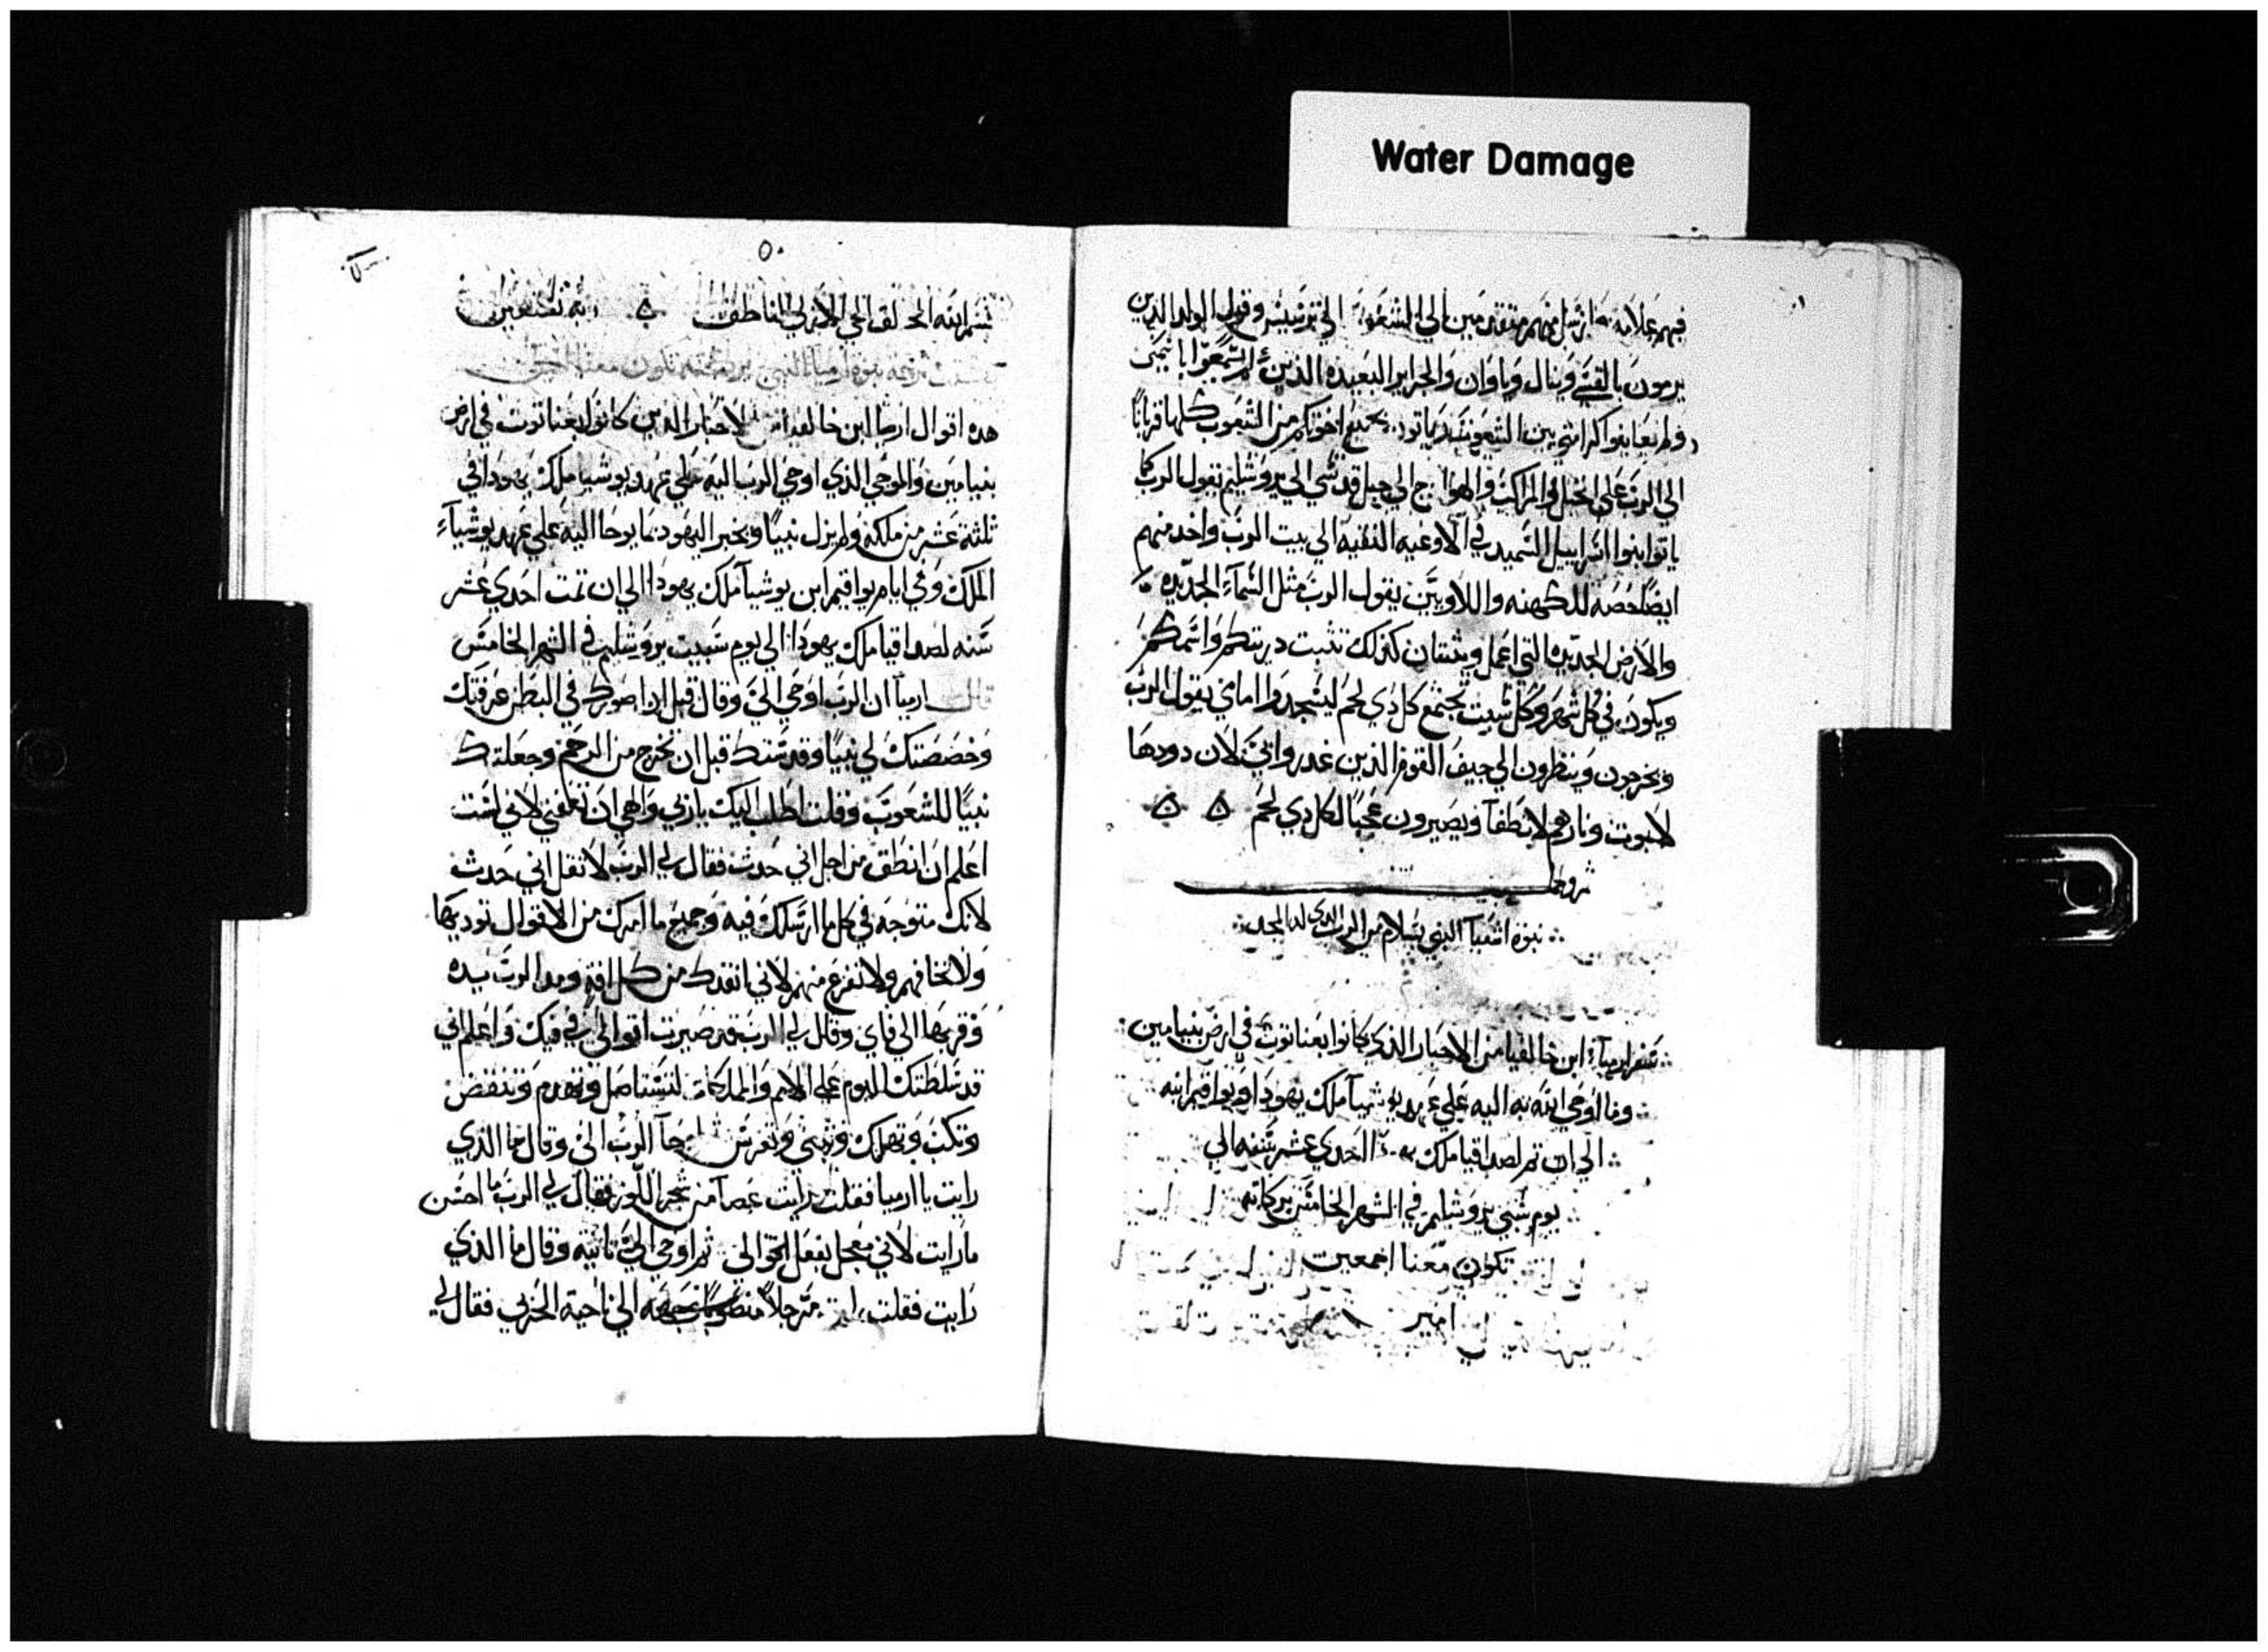 Water Damage
فيهم علامه ارسل منهم متقدمين الي الشعوب الي ترسيس وفول ولود الذين
يرمون بالقسي وبنال وياوان والجزاير البعيده الذين لم يسمعوا باسمي
ولم يعاينوا كرامتي بين الشعوب ياتون بجميع اخوتكم من الشعوب كلها قربانًا
الي الرب علي الخيل والمراكب والهوادج الي جبل قدسي الي يروشليم يقول الرب كما
ياتوا بنوا اسراييل السميد في الاوعيه النقيه الي بيت الرب واخد منهم
ايضًا حصه للكهنه واللاويين يقول الرب مثل السمآء الجديده
والارض الجديده التي اعمل ويثبتان كذلك تثبت دريتكم واسمكم
ويكون في كل شهر وكل سبت يجتمع كل دي لحم ليسجدوا امامي يقول الرب
ويخرجون وينظرون الي جيف القوم الذين غدروا بي لان دودها
لايموت ونارهم لاتطفآ ويصيرون عجبًا لكل دي لحم
نبوه اشعيآ النبي بسلام من الرب الدي له المجد
سفر ارميآء ابن خالقيا من الاحبار الذي كانوا بعناتوت في ارض بنيامين
وما اوحي الله به اليه علي عهد يوشيآ ملك يهودا ويواقيم ابنه
الي ان تم لصداقيا ملك احدي عشر سنه الي
يوم سبي يروشليم في الشهر الخامس بركاته
تكون معنا اجمعين
امين
٥٠
بسم الله الخالق الحي الازلي الناطق
ترجمة نبوة ارميا النبي بركته تكون معنا امين
هده اقوال ارميا ابن خالقيا من الاحبار الدين كانوا بعناتوت في ارض
بنيامين والوحي الذي اوحي الرب اليه علي عهد يوشيا ملك يهودا في
ثلثة عشر من ملكه ولم يزل نبيًا ويخبر اليهود بما يوحا اليه علي عهد يوشيآء
الملك وفي ايام يواقيم ابن يوشيآ ملك يهودا الي ان تمت احدي عشر
سنه لصداقيا ملك يهودا الي يوم سبيت يروشليم في الشهر الخامس
قال ارميآ ان الرب اوحي الي وقال قبل ان اصورك في البطن عرفتك
وخصصتك لي نبيًا وقدستك قبل ان تخرج من الرحم وجعلتك
نبيًا للشعوب وقلت اطلب اليك يا ربي والهي ان تعفني لاني لست
اعلم ان انطق من اجل اني حدث فقال لي الرب لا تقل اني حدث
لانك متوجه في كل ما ارسلك فيه وجميع ما امرك من الاقوال توديها
ولا تخافهم ولا تفزع منهم لاني انقدك من كل افه ومد الرب يده
وقربها الي فاي وقال لي الرب قد صيرت اقوالي في فيك واعلم اني
قد سلطتك اليوم علي الامم والملكات لتستاصل وتهدم وتنقض
وتكب وتهلك وتبني وتغرس ثم اوحآ الرب الي وقال ما الذي
رايت يا ارميا فقلت رايت عصآ من شجر اللوز فقال لي الرب ما احسن
ما رايت لاني معجل بفعل اقوالي ثم اوحي الي ثانية وقال ما الذي
رايت فقلت رايت مرجلاً منصوبًا وجهه الي ناحية الجربي فقال لي